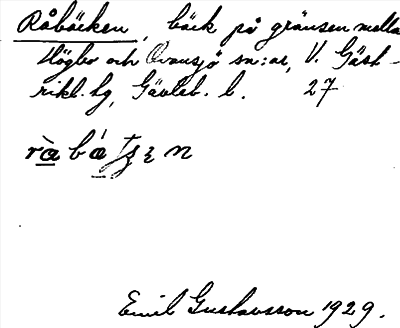 Råbäcken, bäck på gränsen mella
Högbo och Ovansjö sn:ar, V. Gäst-
rikl. hg, Gävleb. l. 27
Emil Gustavsson 1929.